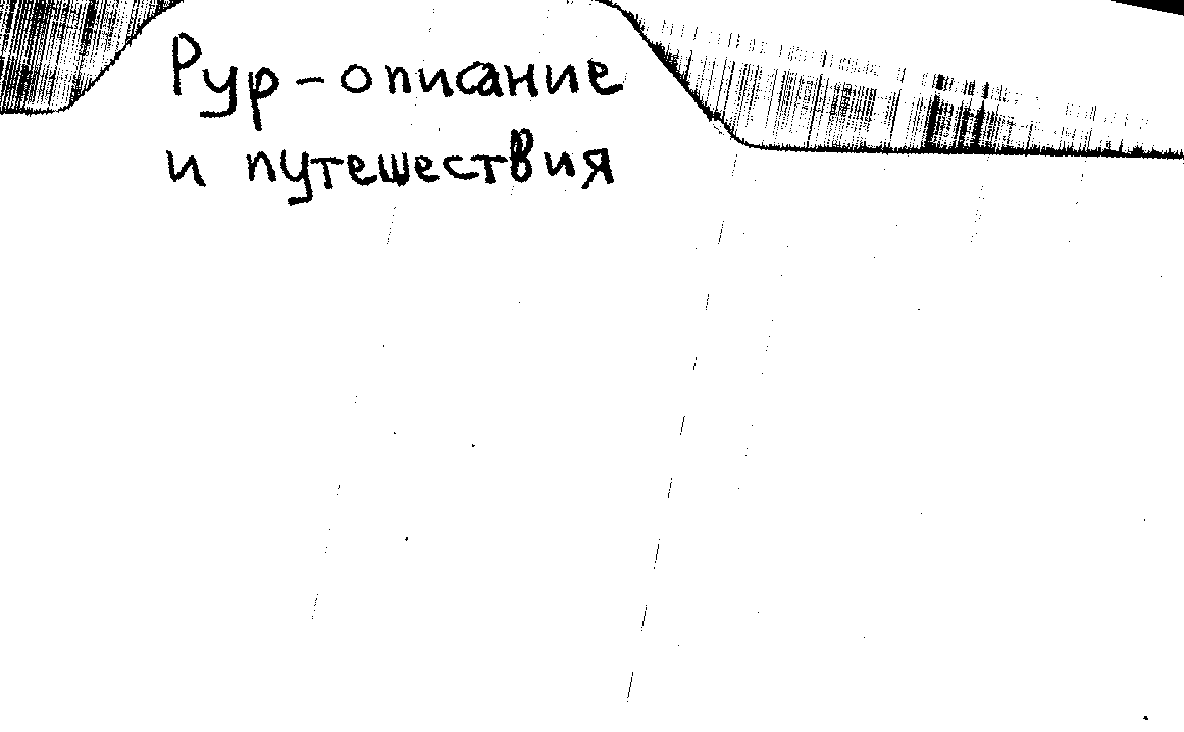 Рур-описание
и путешествия